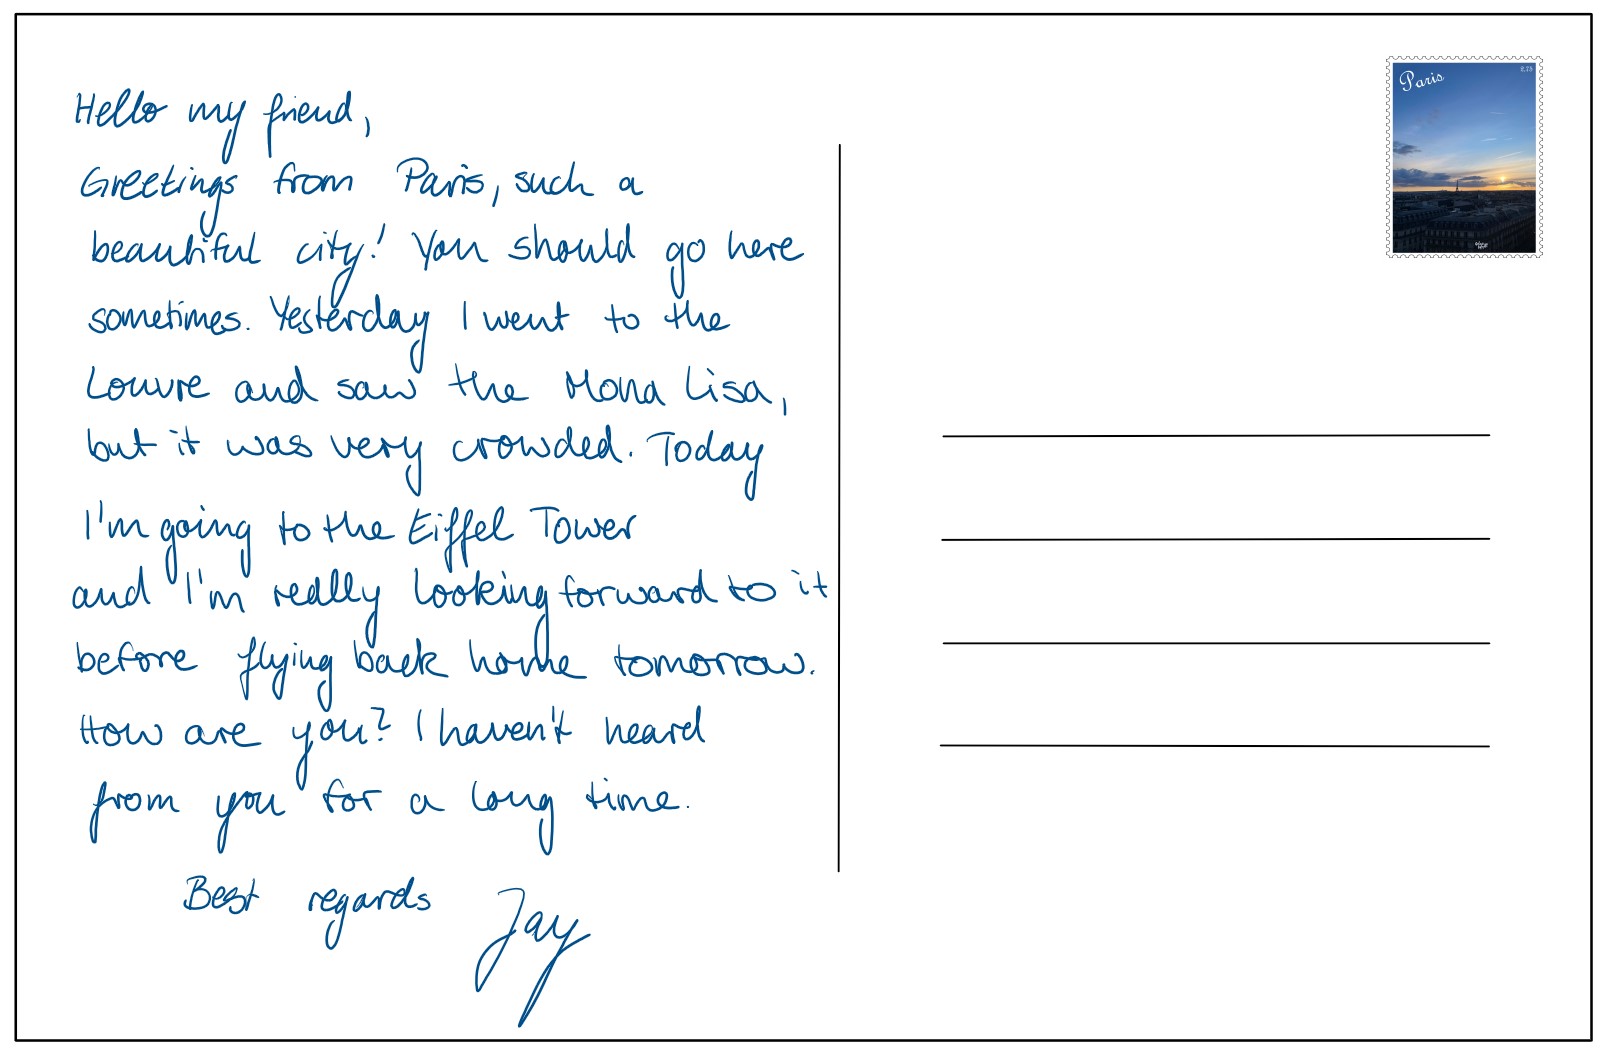 Hello my friend,
Greetings from Paris, such a
beautiful city! You should go here
sometimes. Yesterday I went to the
Louvre and saw the Mona Lisa,
but it was very crowded. Today
I'm going to the Eiffel Tower
and I'm really looking forward to it
before flying back home tomorrow.
How are you? I haven't heard
from you for a long time.
Best regards Jay
Paris